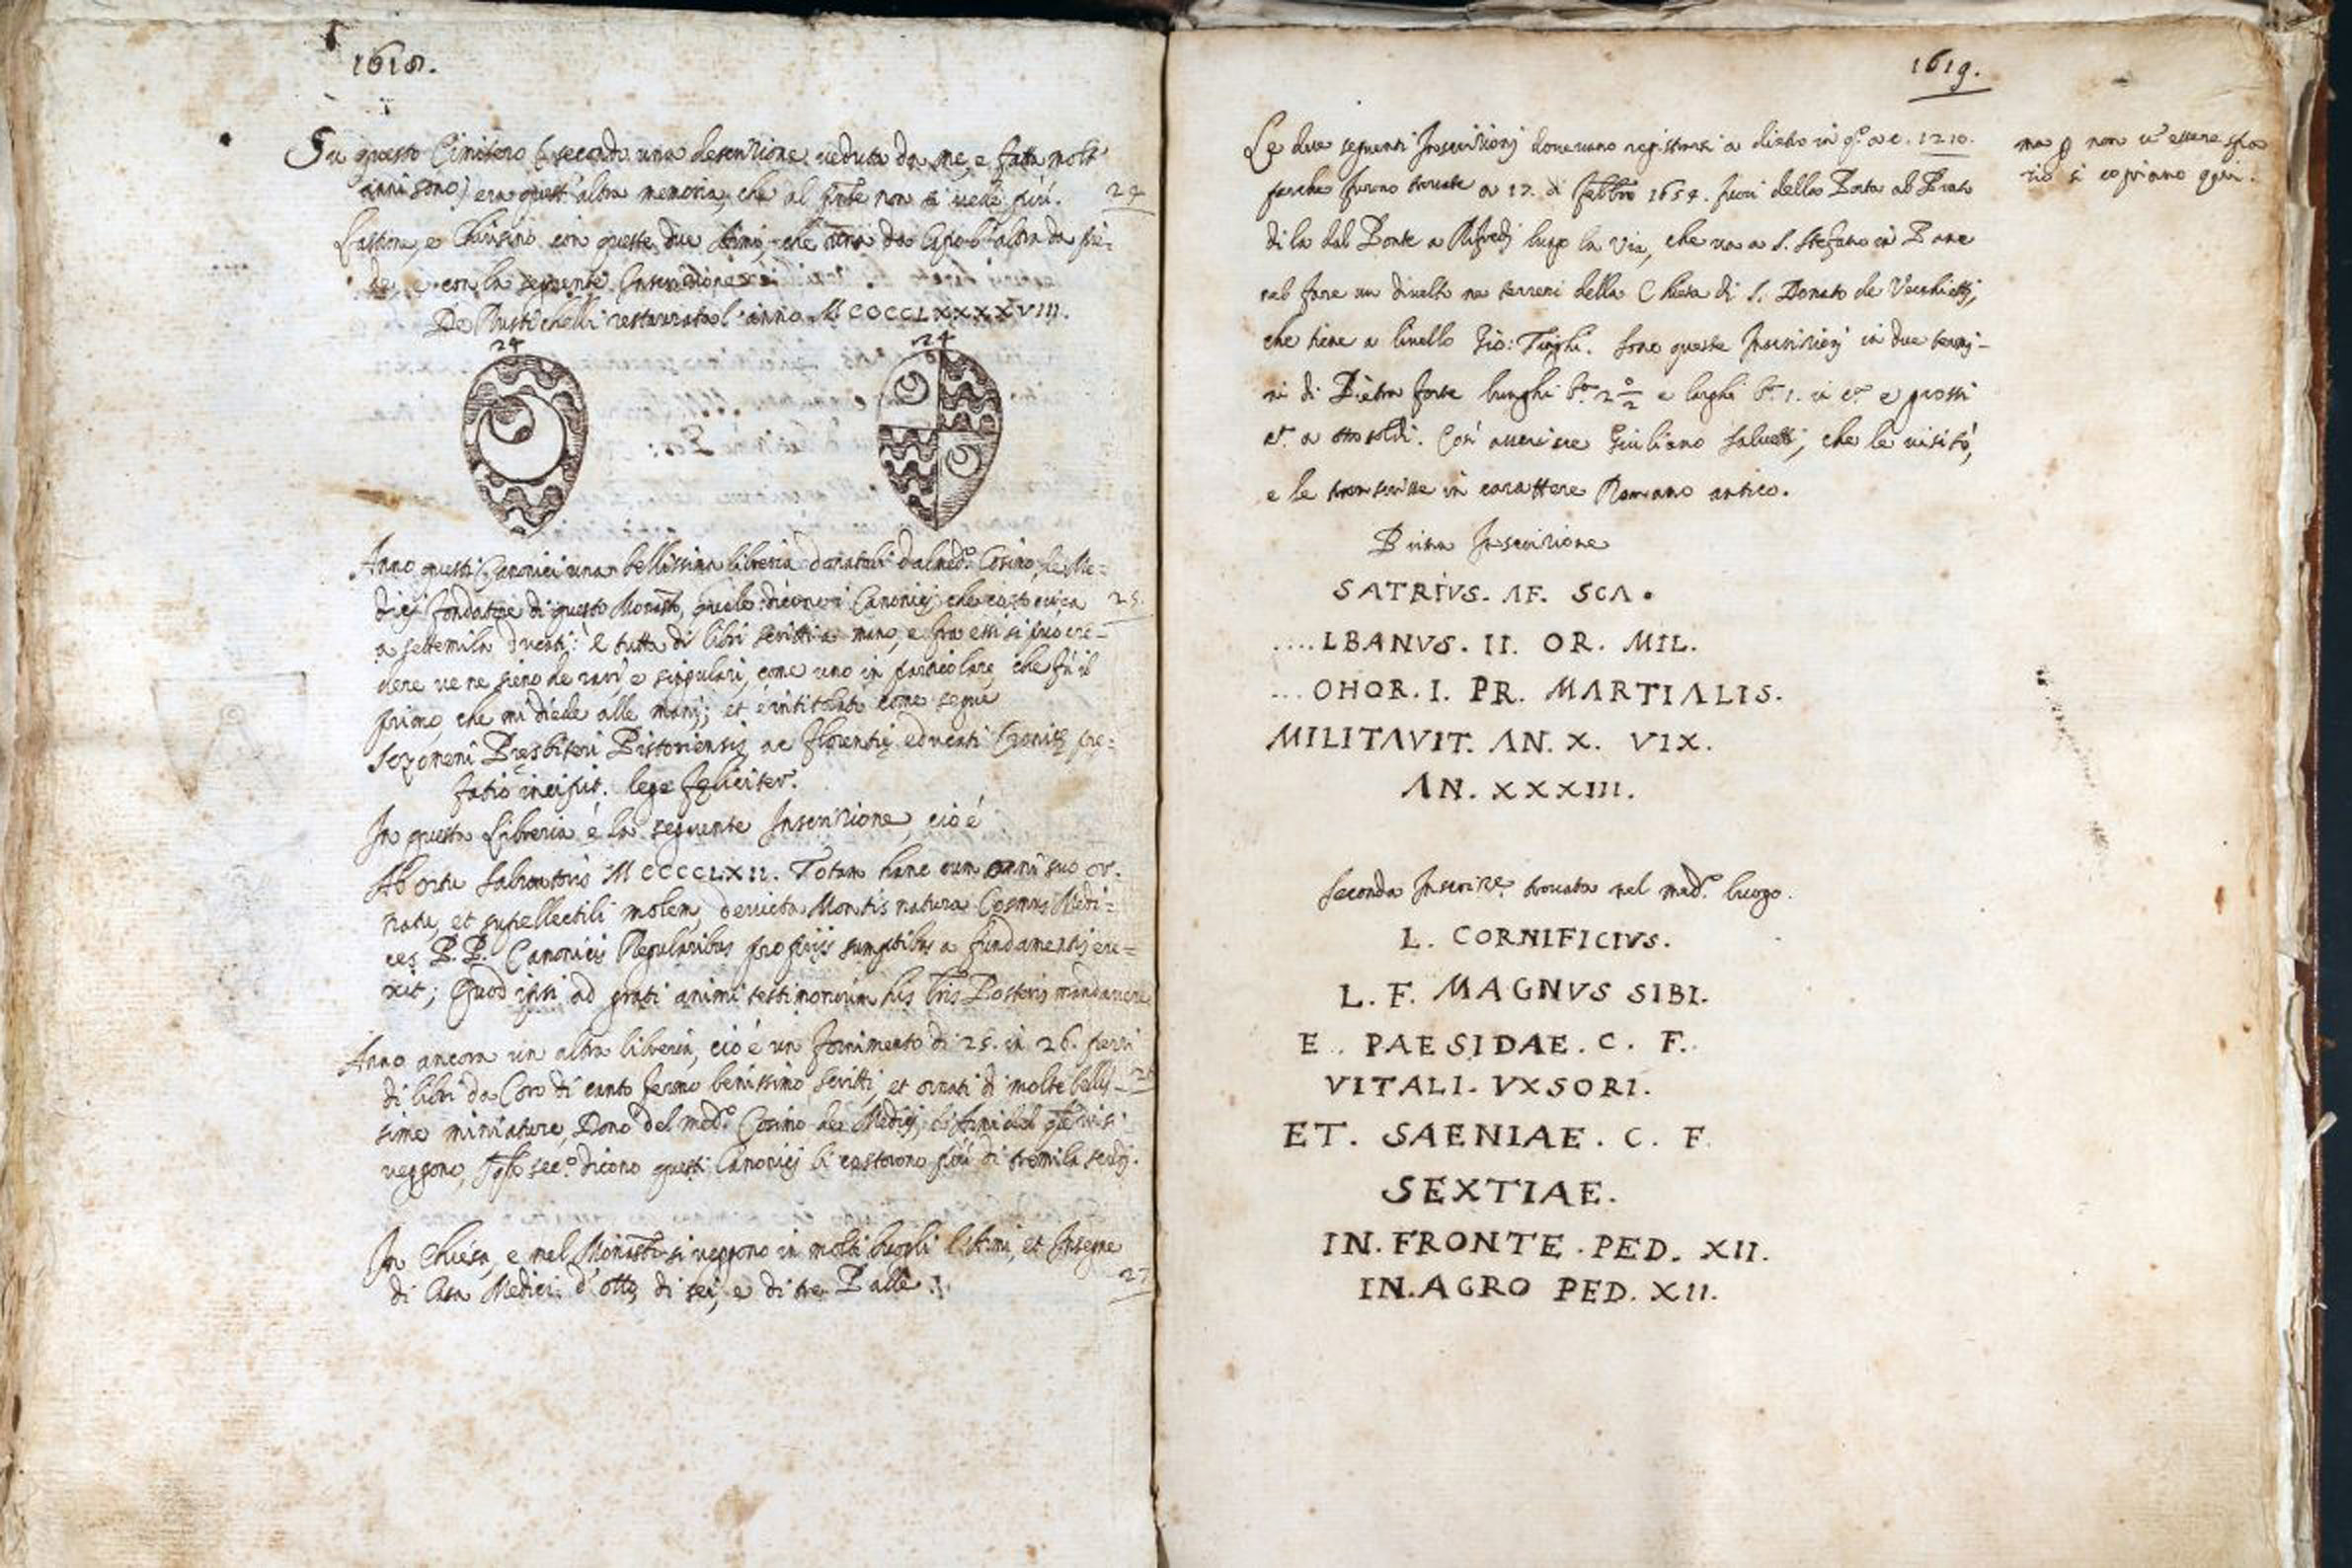 1618.
Su questo Cimitero (secondo una descrizione veduta da me, e fatta molti
anni sono) era quest'altra memoria, che al pnte non si vede più. 24
Lastrone, e Chiusino con queste due Armi, che una da Capo l'altra da pie-
de, e con la seguente Inscrizione
De Rustichelli restaurata l'anno MCCCCLXXXXVIII.
24 24
Anno questi Canonici una bellissima libreria donatali dal med.º Cosimo de Me=
dicj fondatore di questo Monast, quale dicono i Canonicj che costò circa 25.
a settemila ducati: è tutta di libri scritti a mano, e fra essi si può cre-
dere ve ne sieno de rari e singulari, come uno in particolare, che fù il
primo che mi diede alle manj; et è intitolato come segue
Sozomeni Presbiteri Pistoriensis ac Florentię educati Cronicę pre-
fatio incipit. lege feliciter.
In questa Libreria é la seguente Inscrizione, cio é
Ab ortu Salvatoris MCCCCLXII. Totam hanc cum omni suo or-
natu, et supellectili molem, devicta Montis natura Cosmus Medi=
ces P.P. Canonicis Regularibus proprijs sumptibus a fundamentis ere=
xit; Quod ipsi ad grati animi testimonium his lris Posteris mandavere
Anno ancora un altra libreria, cio é un fornimento di 25. in 26. pezzi
di libri da Coro di canto fermo benissimo scritti, et ornati di molte bellis- 26
sime miniature, Dono del med.º Cosimo de Medicj, l'Armi del quale vi si
veggono, sec.º dicono questi Canonicj li costorono più di tremila scudj.
In Chiesa, e nel Monast. si veggono in molti luoghi l'Armi, et Insegne
di Casa Medici d'otto, di sei, e di tre Palle. 27
1619.
Le due seguenti Inscrizionj dovevano registrarsi a dietro in q.º a c. 1210. ma p non v'essere spa
perche furono trovate a 17. di febbro 1654. fuori della Porta al Prato zio si copiano qua.
di la dal Ponte a Rifredj lungo la Via, che va a S. Stefano in Pane
nel fare un divelto ne terreni della Chiesa di S. Donato de Vecchiettj,
che tiene a livello Gio: Tinghi. Sono queste Inscrizionj in due termi-
ni di Pietra forte lunghi b.ª 2 e larghi b.ª 1. in c.ª e grossi
c.ª a otto soldi. Così asserisce Giuliano Salvetti, che le visitò,
e le transcrisse in carattere Romano antico.
Prima Inscrizione
SATRIVS. AF. SCA.
....LBANVS. II. OR. MIL.
...OHOR. I. PR. MARTIALIS.
MILITAVIT. AN. X. VIX.
AN. XXXIII.
Seconda Inscrize trovata nel med.º luogo.
L. CORNIFICIVS.
L. F. MAGNVS SIBI.
E.. PAESIDAE. C. F.
VITALI. VXSORI.
ET. SAENIAE. C. F.
SEXTIAE.
IN. FRONTE. PED. XII.
IN. AGRO PED. XII.